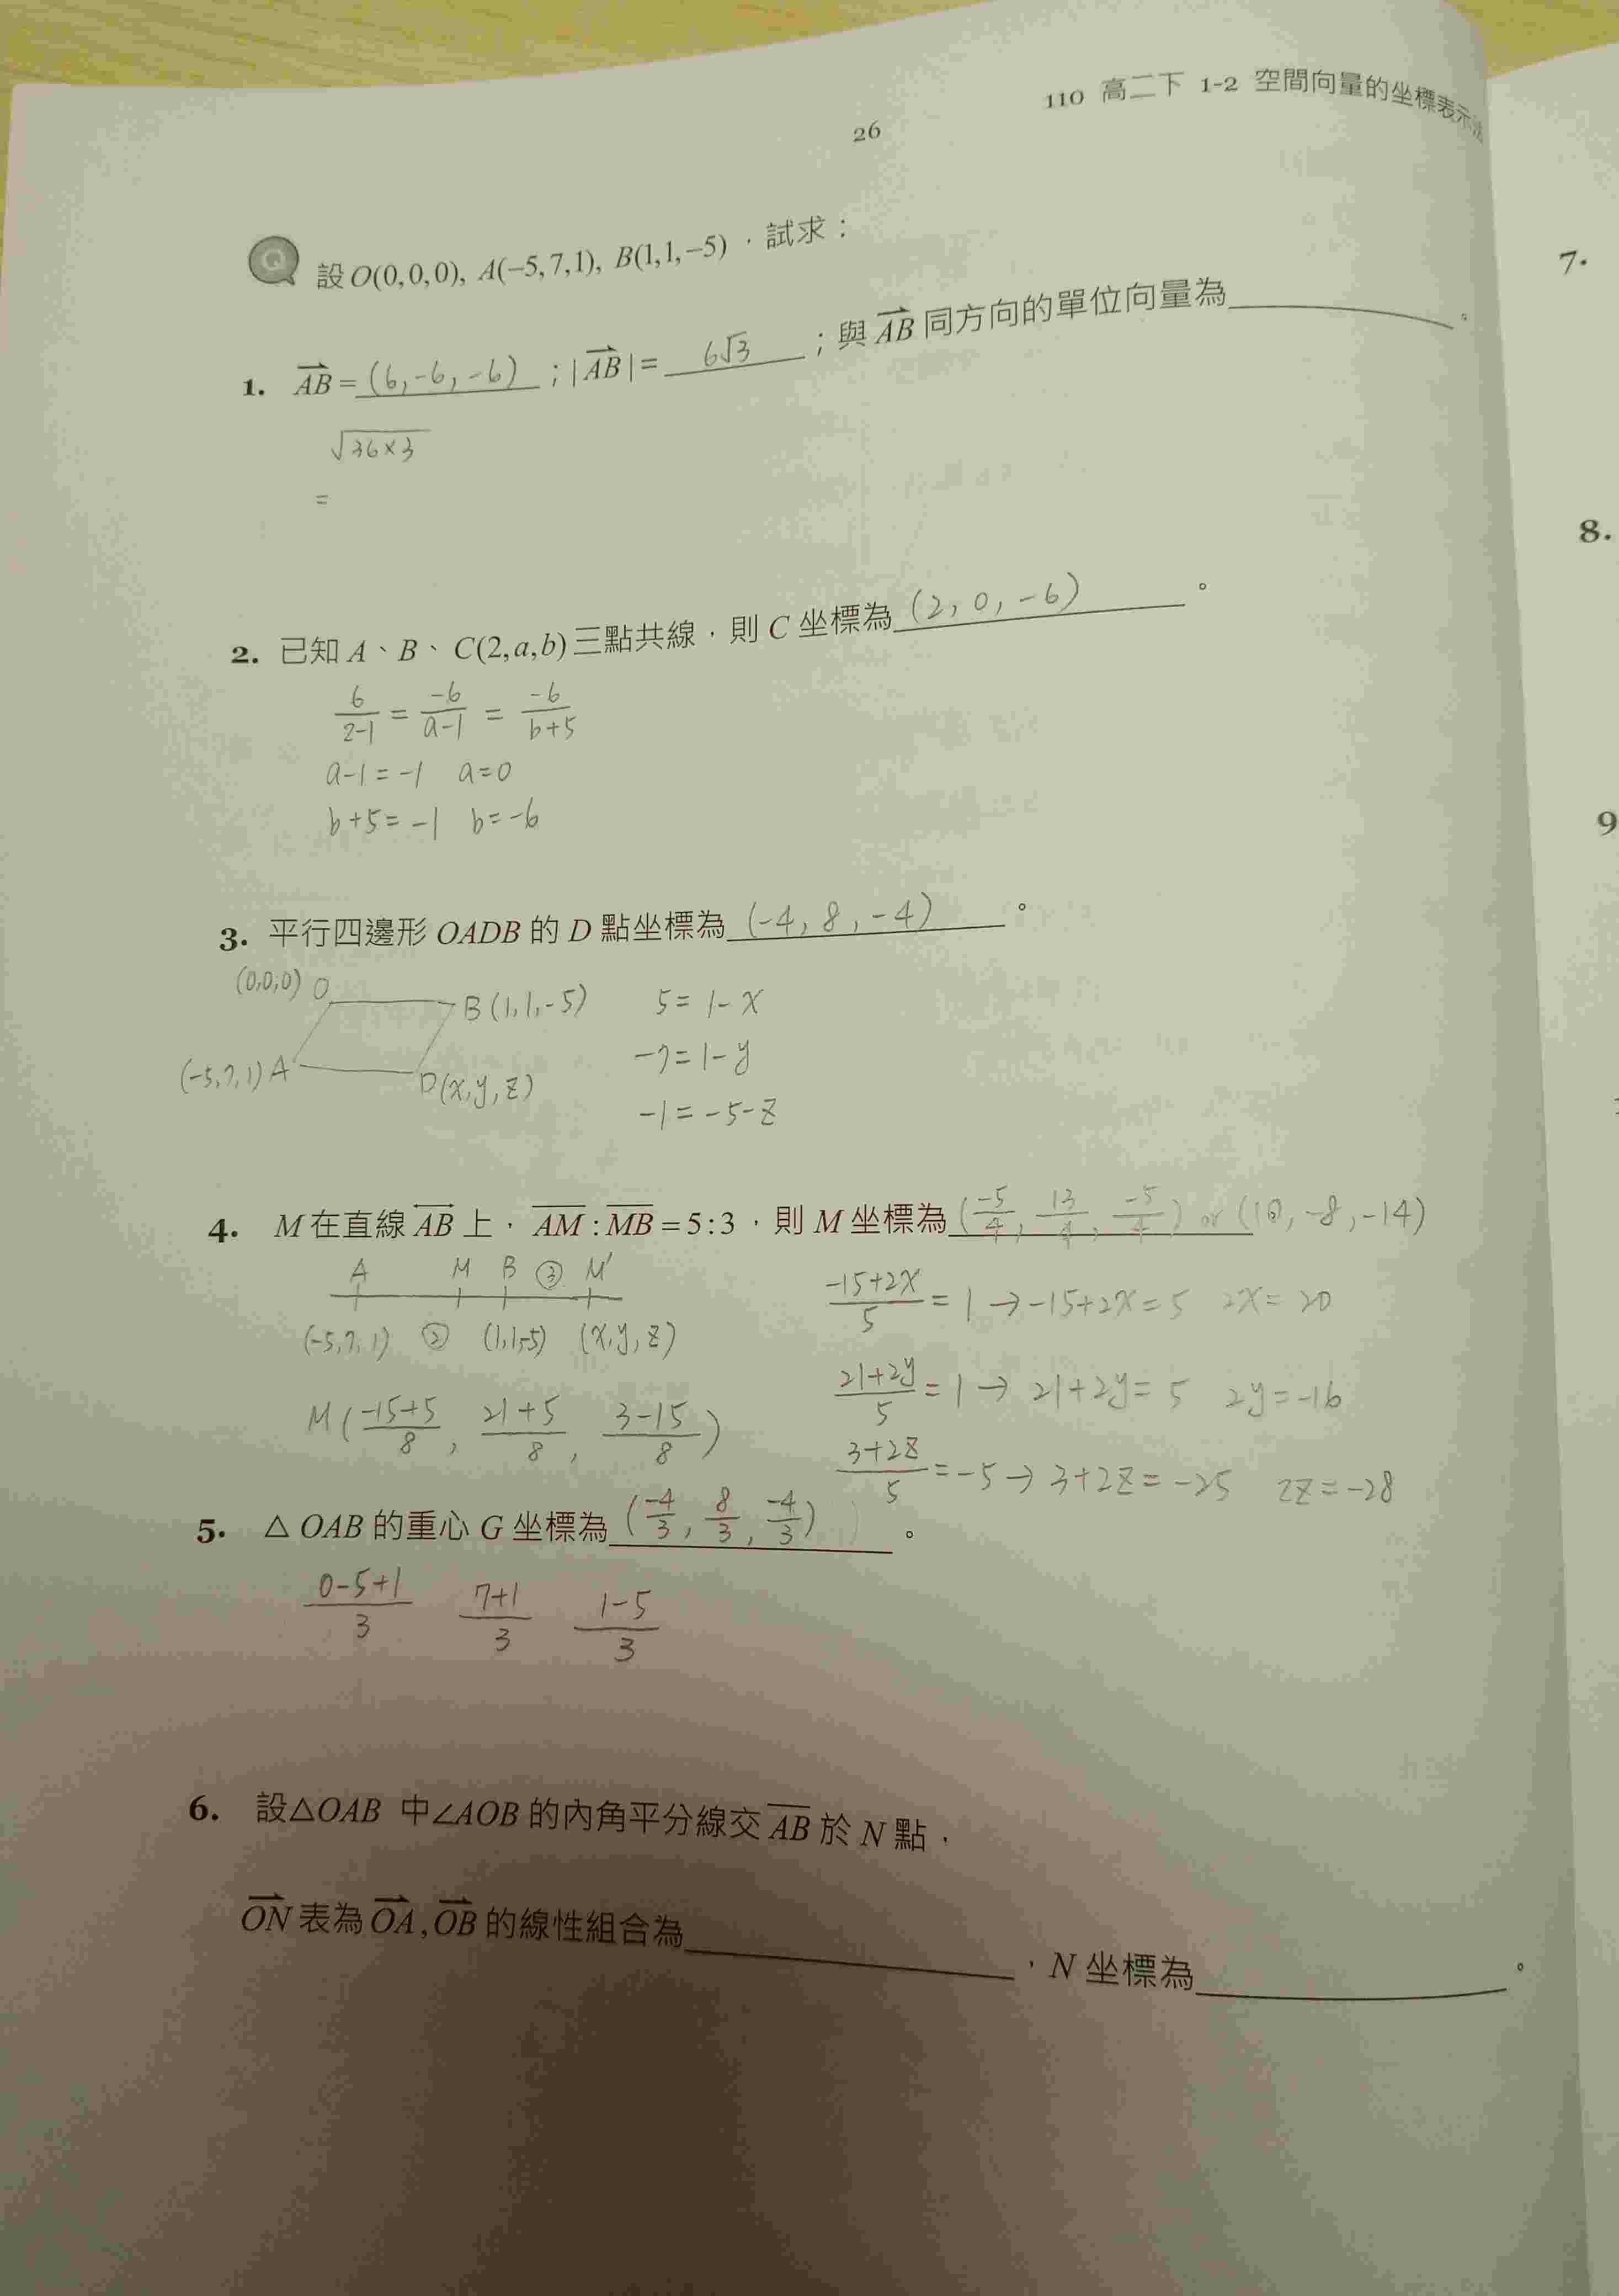 110 高二下 1-2 空間向量的坐標表示法
26
Q 設O(0,0,0), A(−5,7,1), B(1,1,−5)，試求：
1. AB=(6,-6,-6)；|AB|=6√3；與AB同方向的單位向量為____。
√36×3
=
2. 已知A、B、C(2,a,b)三點共線，則C坐標為(2,0,-6)。
6/(2-1) = -6/(a-1) = -6/(b+5)
a-1=-1 a=0
b+5=-1 b=-6
3. 平行四邊形OADB的D點坐標為(-4,8,-4)。
(0,0,0) O
B(1,1,-5) 5=1-x
-7=1-y
(-5,7,1) A D(x,y,z)
-1=-5-z
4. M在直線AB上，AM:MB=5:3，則M坐標為(-5/4, 13/4, -5/4) or (10,-8,-14)
A M B ③ M'
(-5,7,1) ② (1,1,-5) (x,y,z)
(-15+2x)/5=1→-15+2x=5 2x=20
(21+2y)/5=1→21+2y=5 2y=-16
M((-15+5)/8, (21+5)/8, (3-15)/8)
(3+2z)/5=-5→3+2z=-25 2z=-28
5. △OAB的重心G坐標為(-4/3, 8/3, -4/3)。
(0-5+1)/3 (7+1)/3 (1-5)/3
6. 設△OAB 中∠AOB的內角平分線交AB於N點，
ON表為OA,OB的線性組合為____，N坐標為____。
7.
8.
9